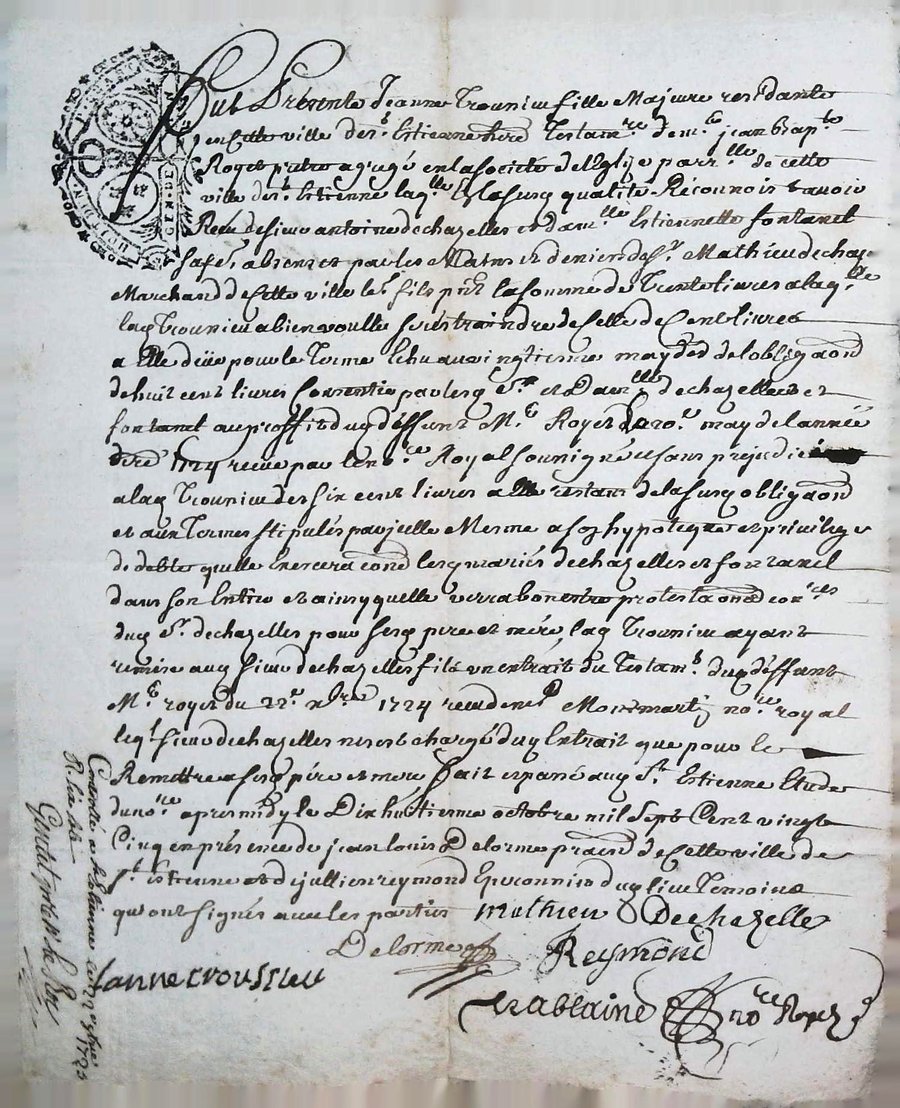 Fut Présente Jeanne fille Majeure residante
en Cette ville de st Estienne here Testamre de mre jean Bapte
Royet pretre agregé en la societé de l'Eglize parrlle de cette
ville de st Estienne laqlle Esd qualité Réconnoit avoir
Réçu de sieur antoine dechazelles et damlle Estiennette fontanel
sa fe absents par les Mains et deniers de sr Mathieu dechaz
Marchand de Cette ville leur fils pnt la somme de Trente livres a laqlle
laq a bien voullu se restraindre de Celle de Cent livres
a Elle düe pour le Terme Echu au vingtieme may de l'obligaon
de huit cent livres Consentie par lesq sr et Damlle dechazelles et
fontanel au proffit duq deffunt Mre Royet le 20e may de l'année
derre 1724 reçue par le nore Royal soussigné sans prejudice
a laq des six cent livres a Elle restant de la susq obligaon
et aux Termes stipulés par jcelle Mesme a son hypoteque et privilege
de debte qu'elle Exercera con lesq mariés dechazelles et fontanel
dans son Entier et ainsy quelle verra bon estre protestaon
duq sr dechazelles pour sesq pere et mere laq ayant
remise auq sieur dechazelles fils un extrait du Testamt duq deffunt
Mre royet du 22e 1724 reçu de me nore royal
leql sieur dechazelles ne s'est chargé duq Extrait que pour le
Remettre a sesq pére et mere fait et passé auq st Estienne Etude
du nore apres midy le Dixhuitieme octobre mil sept Cent vingt
Cinq en présence de jean louis Delorme de Cette ville de
st estienne et de jullien reymond Eperonnier duq lieu Temoins
qui ont signés avec les parties mathieu Dechazelles
Delorme Reymond
nore Royal
Controllé a st estienne ce 1725
R. six sols